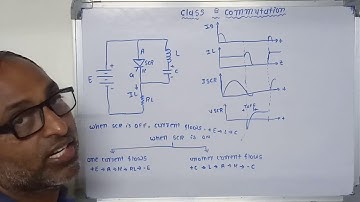 Class B Commutation
IG
t
IL
t
ISCR
t
VSCR
toff
t
E
A
SCR
G
K
L
C
IL
RL
when SCR is OFF, current flows, +E → L → C
when SCR is ON
one current flows
+E → A → K → RL → -E
another current flows
+C → L → A → K → -C